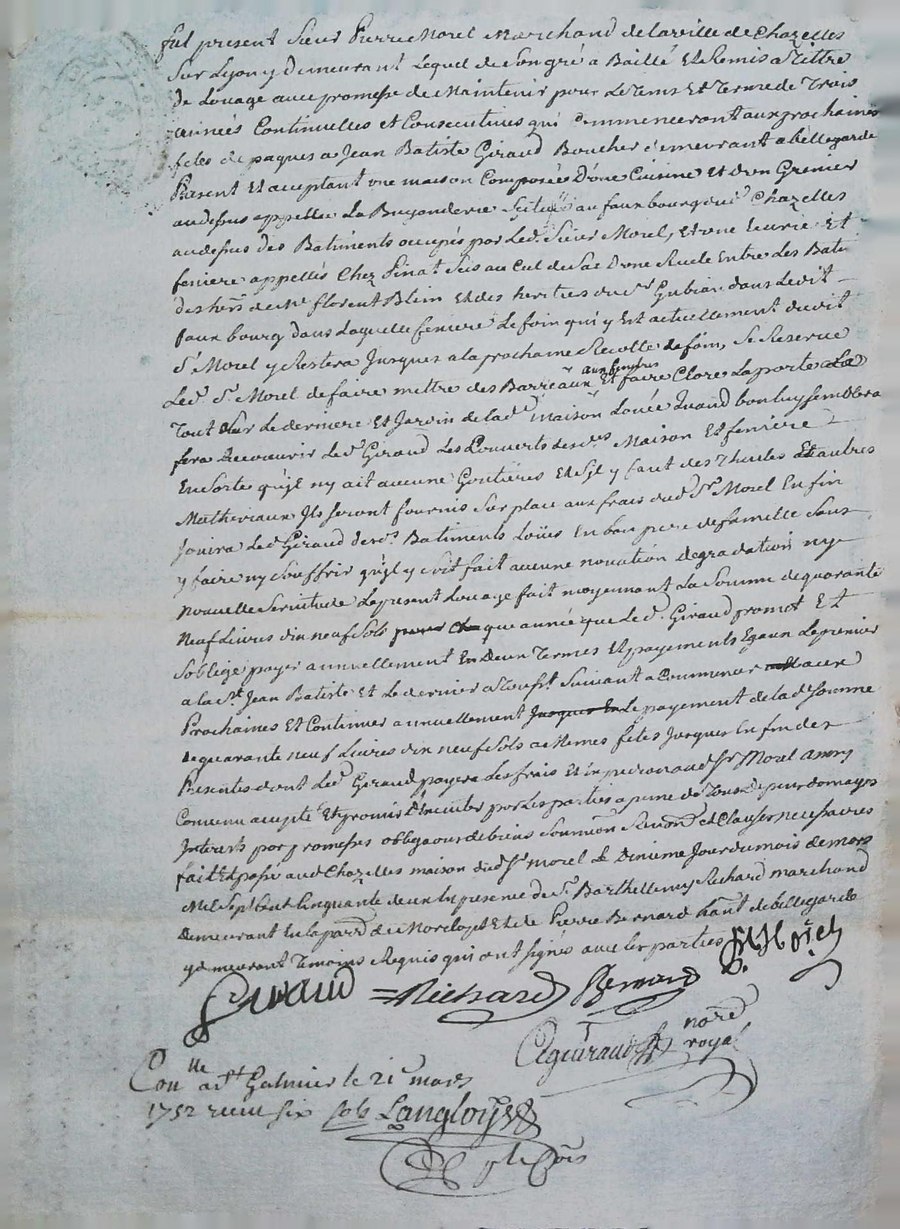 fut present Sieur Pierre Morel Marchand de la ville de Chazelles
Sur Lyon y demeurant Lequel de Son gré a Baillé Et Remis a Tittre
De Louage avec promesse de Maintenir pour Le Tems Et Terme de Trois
années Continuelles et Consecutives qui Commenceront aux prochaines
fetes de paques a Jean Batiste Giraud Boucher demeurant a bellegarde
Present Et acceptant une maison Composée D'une Cuisine Et d'un Grenier
audessus appellée La Buyanderie Scituée au faux bourg dud. Chazelles
audessus des Batiments occupés par Led. Sieur Morel, Et une Ecurie Et
feniere appellés Chez Pinat Sis au Cul de Sac D'une Ruele Entre Les Bati
des hers de Me florent Blein Et des heritiers du Sr Gubian dans Ledit
faux bourg dans Laquelle feniere Le foin qui y Est actuellement dudit
Sr Morel y Restera Jusques a la prochaine Recolte de foin, Se Reserve
Led. Sr Morel de faire mettre des Barreaux aux fenetres Et faire Clore La porte
Tout Sur Le derriere Et Jardin de lad. Maison Louée Quand bon luy semblera
fera Recouvrir Led. Giraud Les Couverts desd. Maison Et feniere
En Sorte qu'il ny ait aucune Goutieres Et S'il y faut des Thuiles Et autres
Matheriaux Ils Seront fournis Sur place aux frais dud. Sr Morel En fin
Jouira Led. Giraud desd. Batiments Loüés En bon pere de famille Sans
y faire ny Souffrir qu'il y soit fait aucune novation degradation ny
nouvelle Servitude Le present Louage fait moyennant La Somme de quarante
Neuf Livres dix neuf Sols pour Cha que année que Led. Giraud promet Et
S'oblige payer annuellement En Deux Termes Et payements Egaux Le premier
a la St. Jean Batiste Et Le dernier a Suivant a Commencer aux
Prochaines Et Continuer annuellement Jusques En Le payement de lad. Somme
de quarante neuf Livres dix neuf Sols a Memes fetes Jusques En fin des
Presentes dont Led. Giraud payera Les frais Et aud. Sr Morel
Convenu accepté Et promis D'Executer par Les parties a peine de Tous Depens domages
Interets par promesses obligaõns de biens Soumõn Renonõn Et Clauses necessaires
fait Et passé aud. Chazelles maison dud. Sr Morel Le Dixieme Jour du mois de mars
Mil Sept Cent Cinquante deux En presence de Sr. Barthellemy Richard marchand
Demeurant En la parr. de Et de Pierre Bernard hant. de bellegarde
y demeurant Temoins Requis qui ont signés avec les parties
Giraud Richard Bernard Morel
Cegiraud nore royal
Conlle a St Galmier le 21e mars
1752 receu six sols Langloys